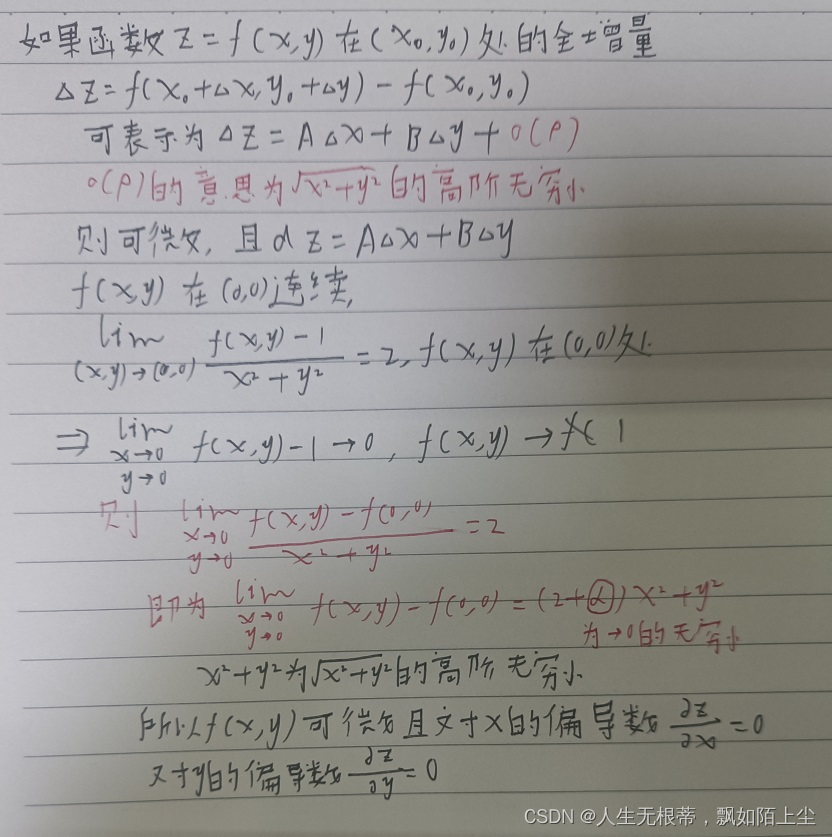 如果函数 z = f(x,y) 在 (x₀,y₀) 处的全增量
Δz = f(x₀+Δx, y₀+Δy) - f(x₀,y₀)
可表示为 Δz = AΔx + BΔy + o(ρ)
o(ρ)的意思为√(x²+y²) 的高阶无穷小
则可微, 且 dz = AΔx + BΔy
f(x,y) 在 (0,0) 连续,
lim (x,y)→(0,0) (f(x,y)-1)/(x²+y²) = 2, f(x,y) 在 (0,0) 处
⇒ lim x→0 y→0 f(x,y)-1→0, f(x,y)→ 1
则 lim x→0 y→0 (f(x,y)-f(0,0))/(x²+y²) = 2
即为 lim x→0 y→0 f(x,y)-f(0,0) = (2+α) x²+y²
为→0的无穷小
x²+y²为√(x²+y²)的高阶无穷小
所以f(x,y)可微且对x的偏导数 ∂z/∂x = 0
对y的偏导数 ∂z/∂y = 0
CSDN @人生无根蒂，飘如陌上尘